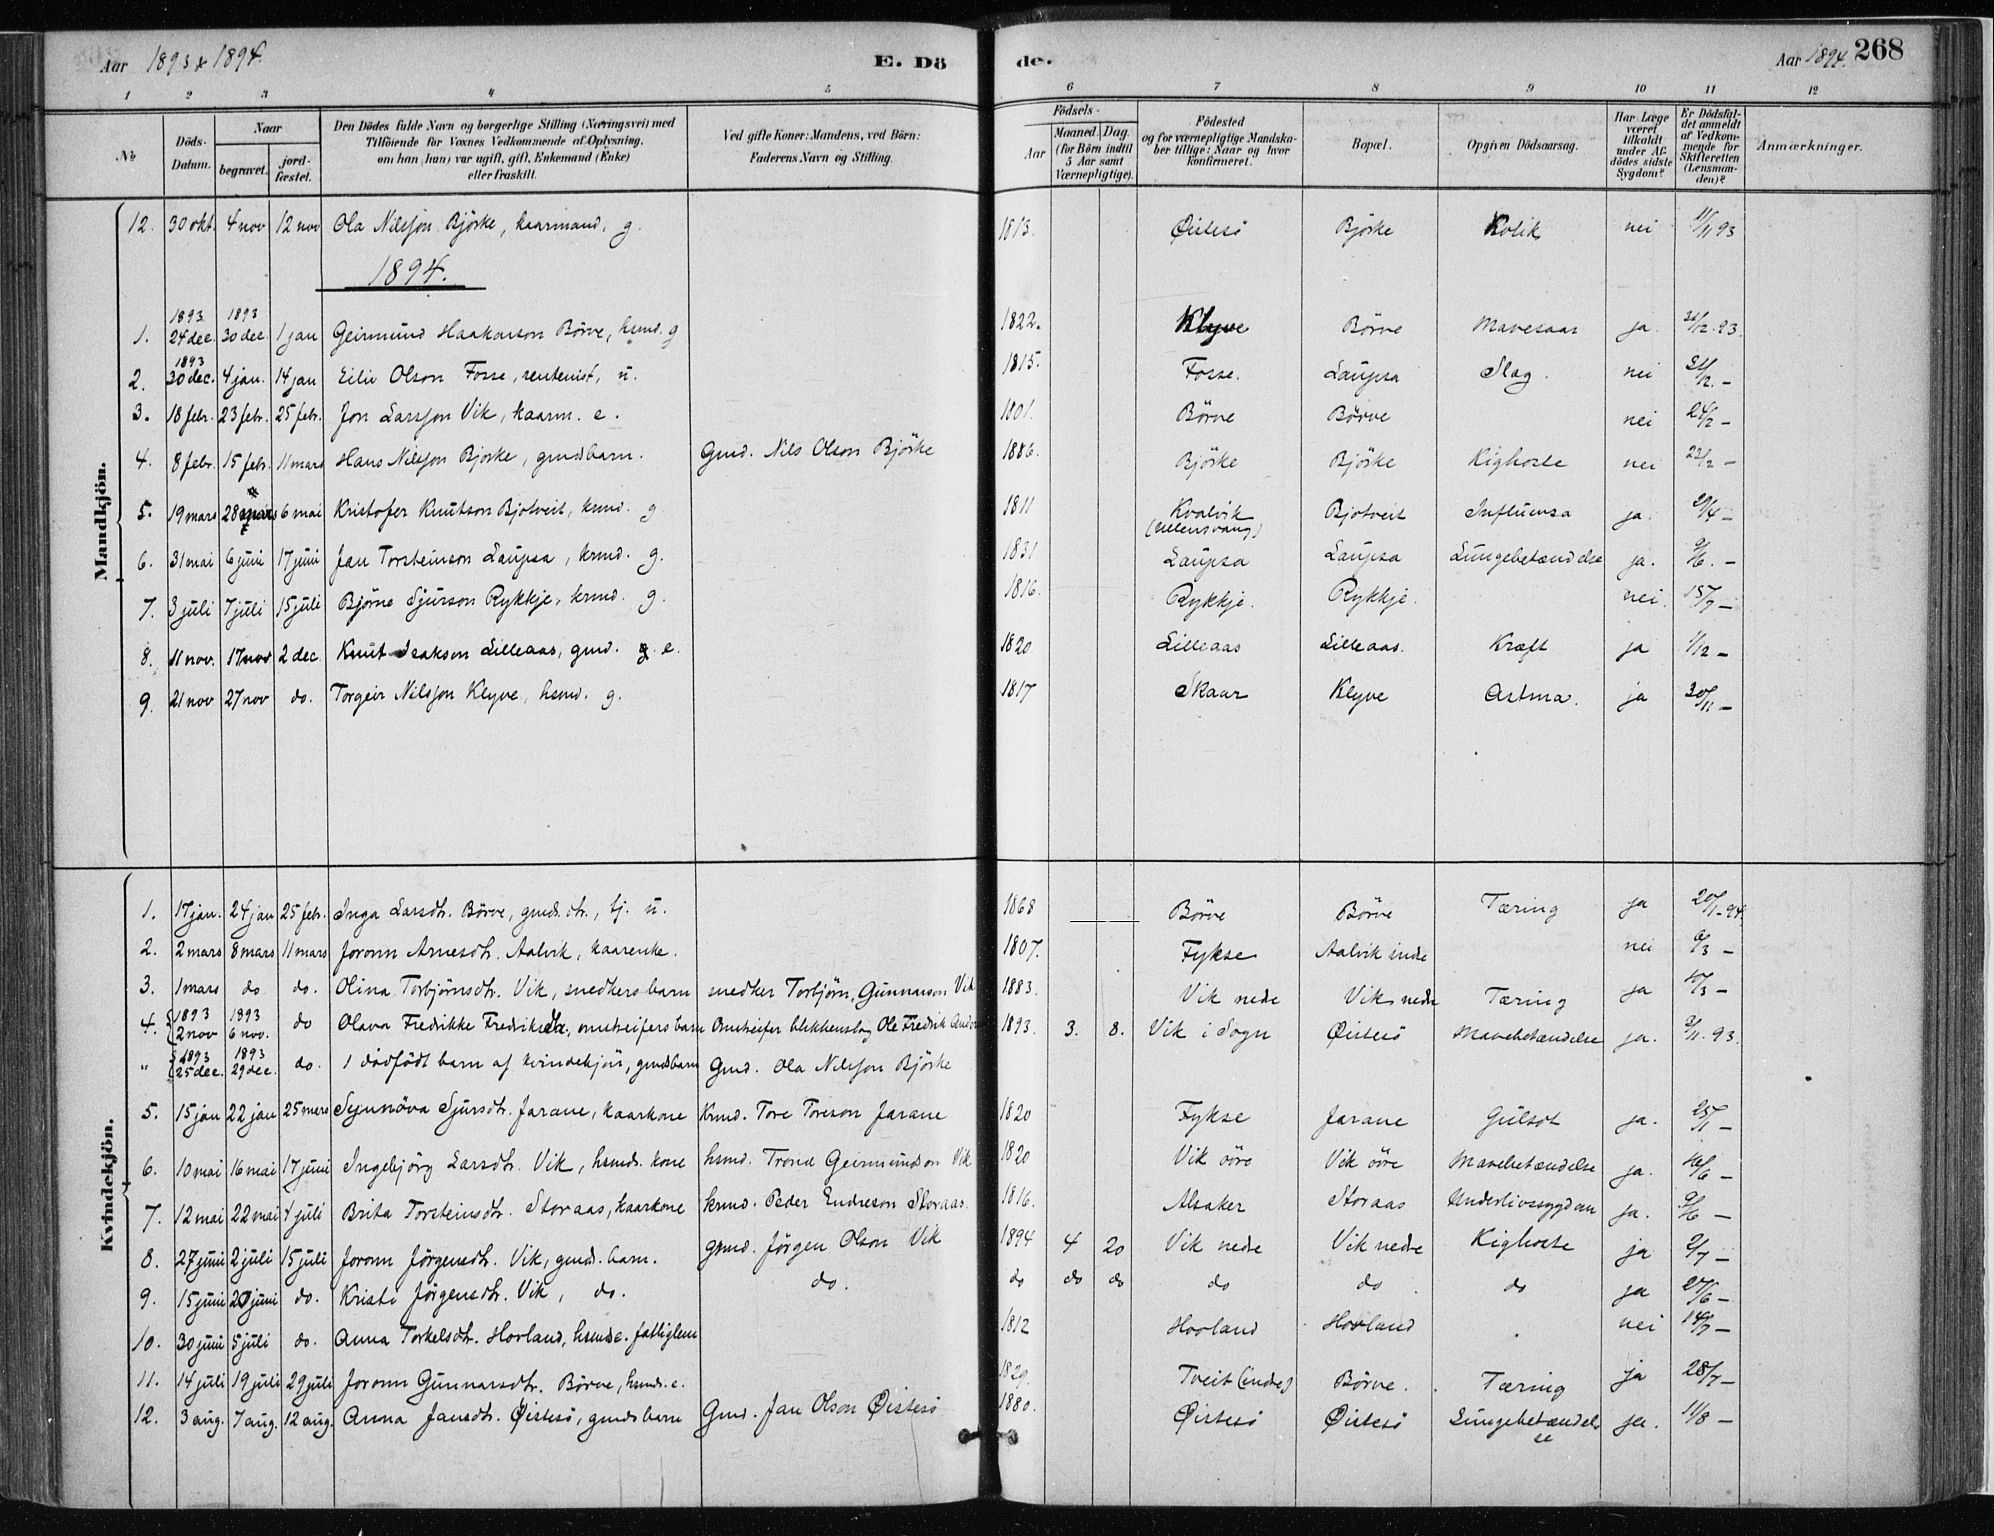 Aar 1893 & 1894.
E. Dö
de.
Aar 1894. 268
1 2 3 4 5 6 7 8 9 10 11 12
No. Döds-Datum. Naar begravet. jordfæstet. Den Dödes fulde Navn og borgerlige Stilling (Næringsvei) med Tilföiende for Voxnes Vedkommende af Oplysning, om han (hun) var ugift, gift, Enkemand (Enke) eller fraskilt. Ved gifte Koner: Mandens, ved Börn: Faderens Navn og Stilling.
Födsels- Aar Maaned. Dag. (for Börn indtil 5 Aar samt Værnepligtige). Födested og for værnepligtige Mandskaber tillige: Naar og hvor konfirmeret. Bopæl. Opgiven Dödsaarsag. Har Læge været tilkaldt under Afdödes sidste Sygdom? Er Dödsfaldet anmeldt af Vedkommende for Skifteretten (Lensmanden)? Anmærkninger.
Mandkjön.
12. 30 okt. 4 nov 12 nov Ola Nilsson Björke, kaarmand, g. 1813. Øistesö Björke Kolik nei 11/11 93
1894.
1. 1893 24 dec. 1893 30 dec. 1 jan Geirmund Haakonson Börve, hsmd. g 1822. Klyve Börve Mavesaar ja 31/12 93.
2. 1893 30 dec. 4 jan. 14 jan Eiliv Olson Fosse, rentenist, u. 1815. Fosse. Laupsa Slag. nei 31/12 –
3. 18 febr. 23 febr. 25 febr. Jon Larsson Vik, kaarm. e. 1801. Börve Börve nei 24/2 –
4. 8 febr. 15 febr. 11 mars Hans Nilsson Bjorke, gmdsbarn. Gmd. Nils Olson Björke 1886. Björke Björke Kighoste nei 22/2 –
5. 19 mars 28 mars 6 mai Kristofer Knutson Bjotveit, krmd. g 1811 Kvalvik (Ullensvang) Bjotveit Influensa ja. 29/4 –
6. 31 mai 6 juni 17 juni Jan Torsteinson Laupsa, krmd. g. 1831 Laupsa Laupsa Lungebetændelse ja. 9/6. –
7. 3 juli 7 juli 15 juli Bjørne Sjurson Rykkje, krmd. g. 1816. Rykkje. Rykkje. nei. 15/7 –
8. 11 nov. 17 nov 2 dec Knut Isakson Lilleaas, gmd. e. 1820 Lilleaas Lilleaas. Kræft ja 1/12 –
9. 21 nov 27 nov do. Torgeir Nilsson Klyve, hsmd. g. 1817 Skaar Klyve Astma. ja 30/11 –
Kvindekjön.
1. 17 jan. 24 jan 25 febr. Inga Larsdtr. Börve, gmds. dtr., tj. u. 1868 Börve Börve Tæring ja 20/1 94.
2. 2 mars 8 mars 11 mars Joronn Arnesdtr. Aalvik, kaarenke. 1807. Fykse Aalvik indre nei 6/3 –
3. 1 mars do do. Olina Torbjörnsdtr. Vik, snedkersbarn snedker Torbjörn Gunnarson Vik 1883. Vik nedre Vik nedre Tæring ja 10/3 –
4. 1893 2 nov 1893 6 nov. do Olava Fredrikke Fredriksdtr., omstreifersbarn Omstreifer blikkenslag. Ole Fredrik 1893. 3. 8. Vik i Sogn Øistesö Mavebetændelse ja. 9/11. 93.
" 1893 25 dec. 1893 29 dec. do. 1 dödfödt barn af kvindekjön, gmdsbarn Gmd. Ola Nilsson Björke
5. 15 jan 22 jan 25 mars Synnöva Sjursdtr. Jarane, kaarkone Krmd. Tore Toreson Jarane 1820 Fykse Jarane Gulsot ja. 25/1 –
6. 10 mai 16 mai 17 juni Ingebjörg Larsdtr. Vik, hsmds. kone hsmd. Trond Geirmundson Vik 1820 Vik öÿre Vik öÿre Mavebetændelse ja. 16/6 –
7. 12 mai 22 mai 4 juli Brita Torsteinsdtr. Storaas, kaarkone krmd. Peder Endreson Storaas. 1816. Alsaker Storaas Underlivssygdom ja. 9/6 –
8. 27 juni 2 juli 15 juli Joronn Jörgensdtr. Vik, gmds. barn. gmd. Jörgen Olson Vik 1894 4 20 Vik nedre Vik nedre Kighoste ja 2/7 –
9. 15 juni 20 juni do. Kristi Jörgensdtr. Vik, do. do. do do do do do do ja 27/6 –
10. 30 juni 5 juli do. Anna Torkelsdtr. Hovland, hsmds e. fattiglem 1812 Hovland Hovland nei 14/7 –
11. 14 juli 19 juli 29 juli Joronn Gunnarsdtr. Börve, hsmds. e. 1829. Tveit (indre) Börve. Tæring ja 28/7 –
12. 3 aug. 7 aug. 12 aug. Anna Jansdtr. Øistesö, gmdsbarn Gmd. Jan Olson Øistesö 1880. Øistesö Øistesö Lungebetændelse ja. 11/8 –